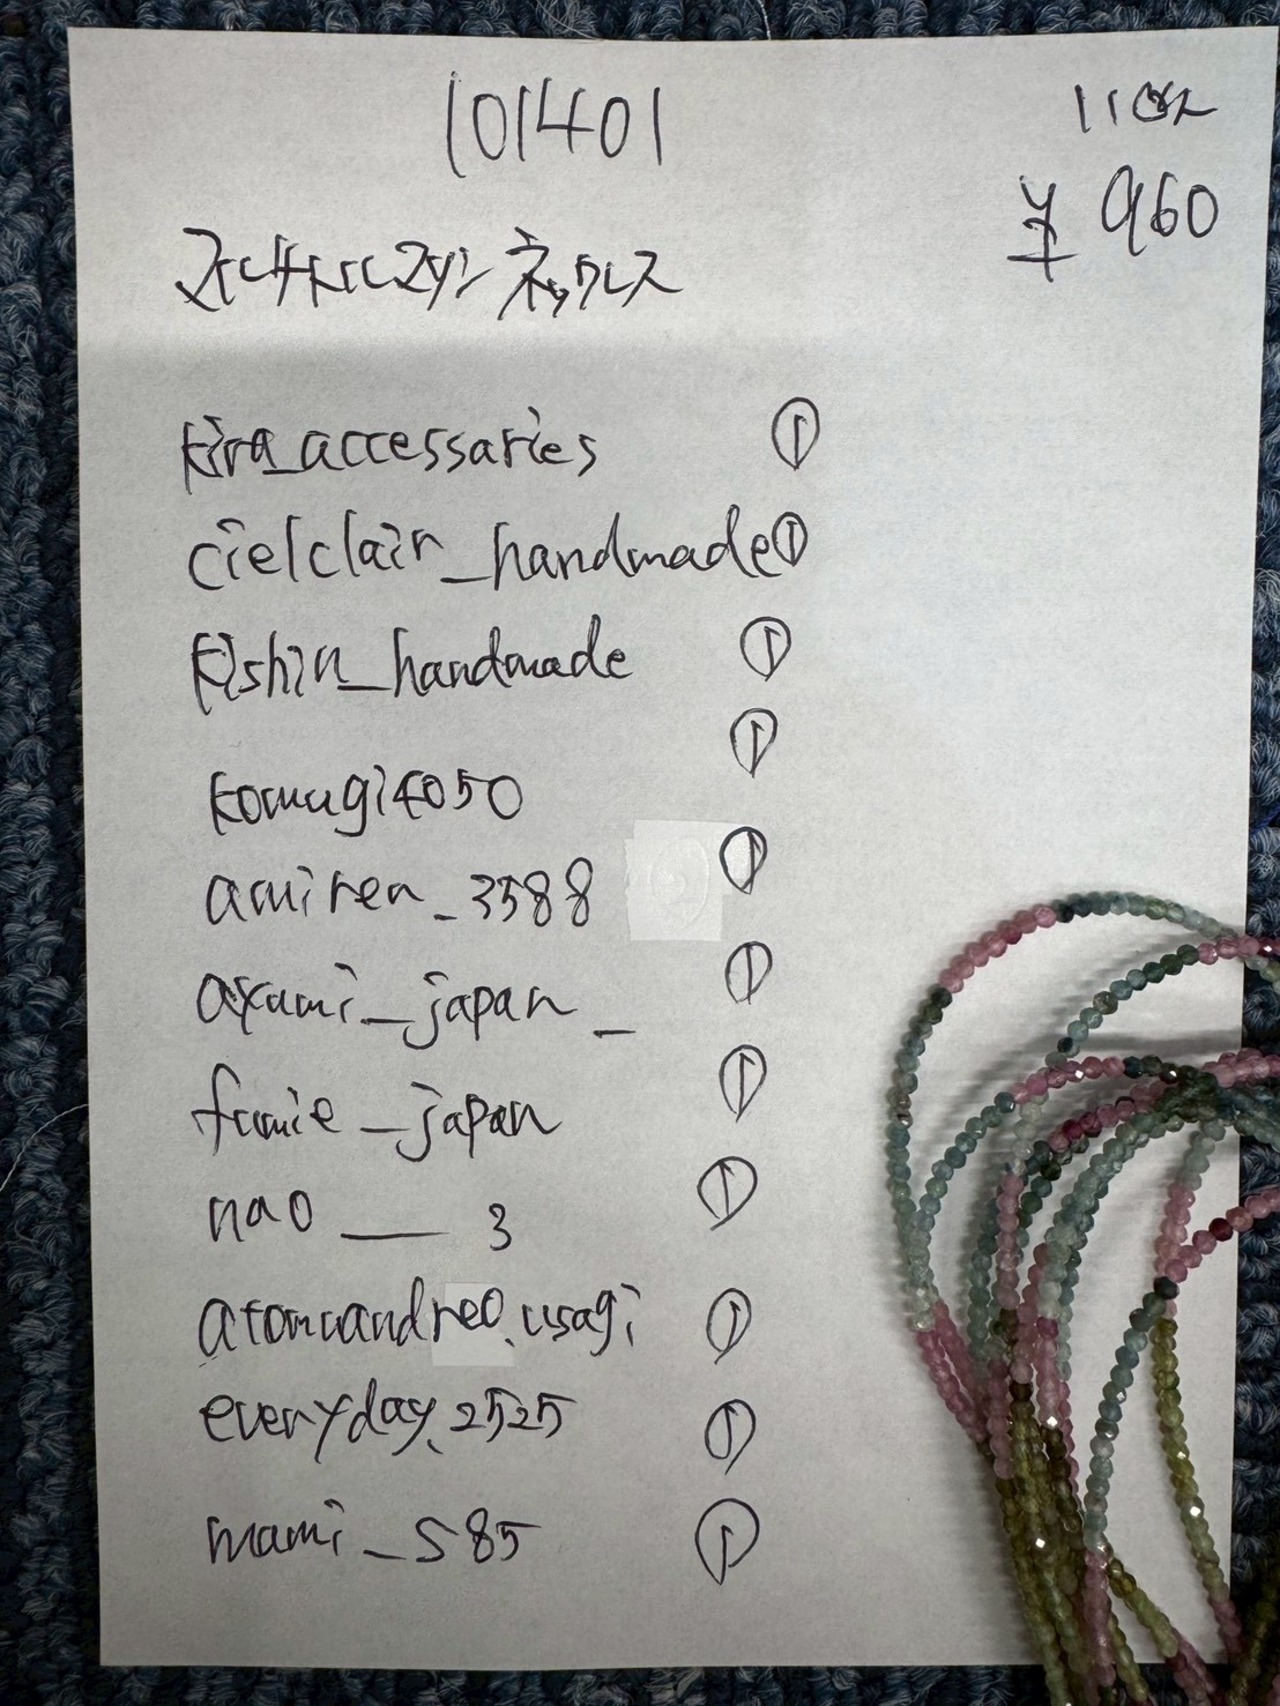 101401
11本
¥ 960
マルチトルマリン ネックレス
kira_accessaries ①
cielclair_handmade ①
kishin_handmade ①
komugi4050 ①
amiren_3588 ①
ayami_japan_ ①
fumie_japan ①
nao___3 ①
atomandreo.usagi ①
everyday.2525 ①
mami_S85 ①